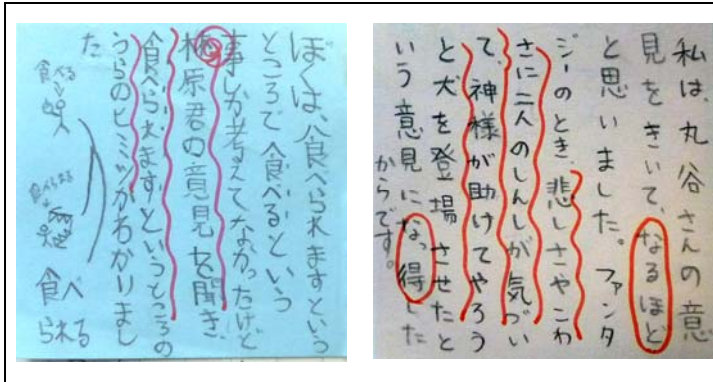 ぼくは、食べられますという
ところで食べるという
事しか考えてなかったけど
柿原君の意見を聞き、
食べられます。というところの
うらのヒミツがわかりまし
た
食べる
食べられる
食べ
られる
私は、丸谷さんの意
見をきいて、なるほど
と思いました。ファンタ
ジーのとき、悲しさやこわ
さに二人のしんしが気づい
て、神様が助けてやろう
と犬を登場させたと
いう意見になっ得した
からです。